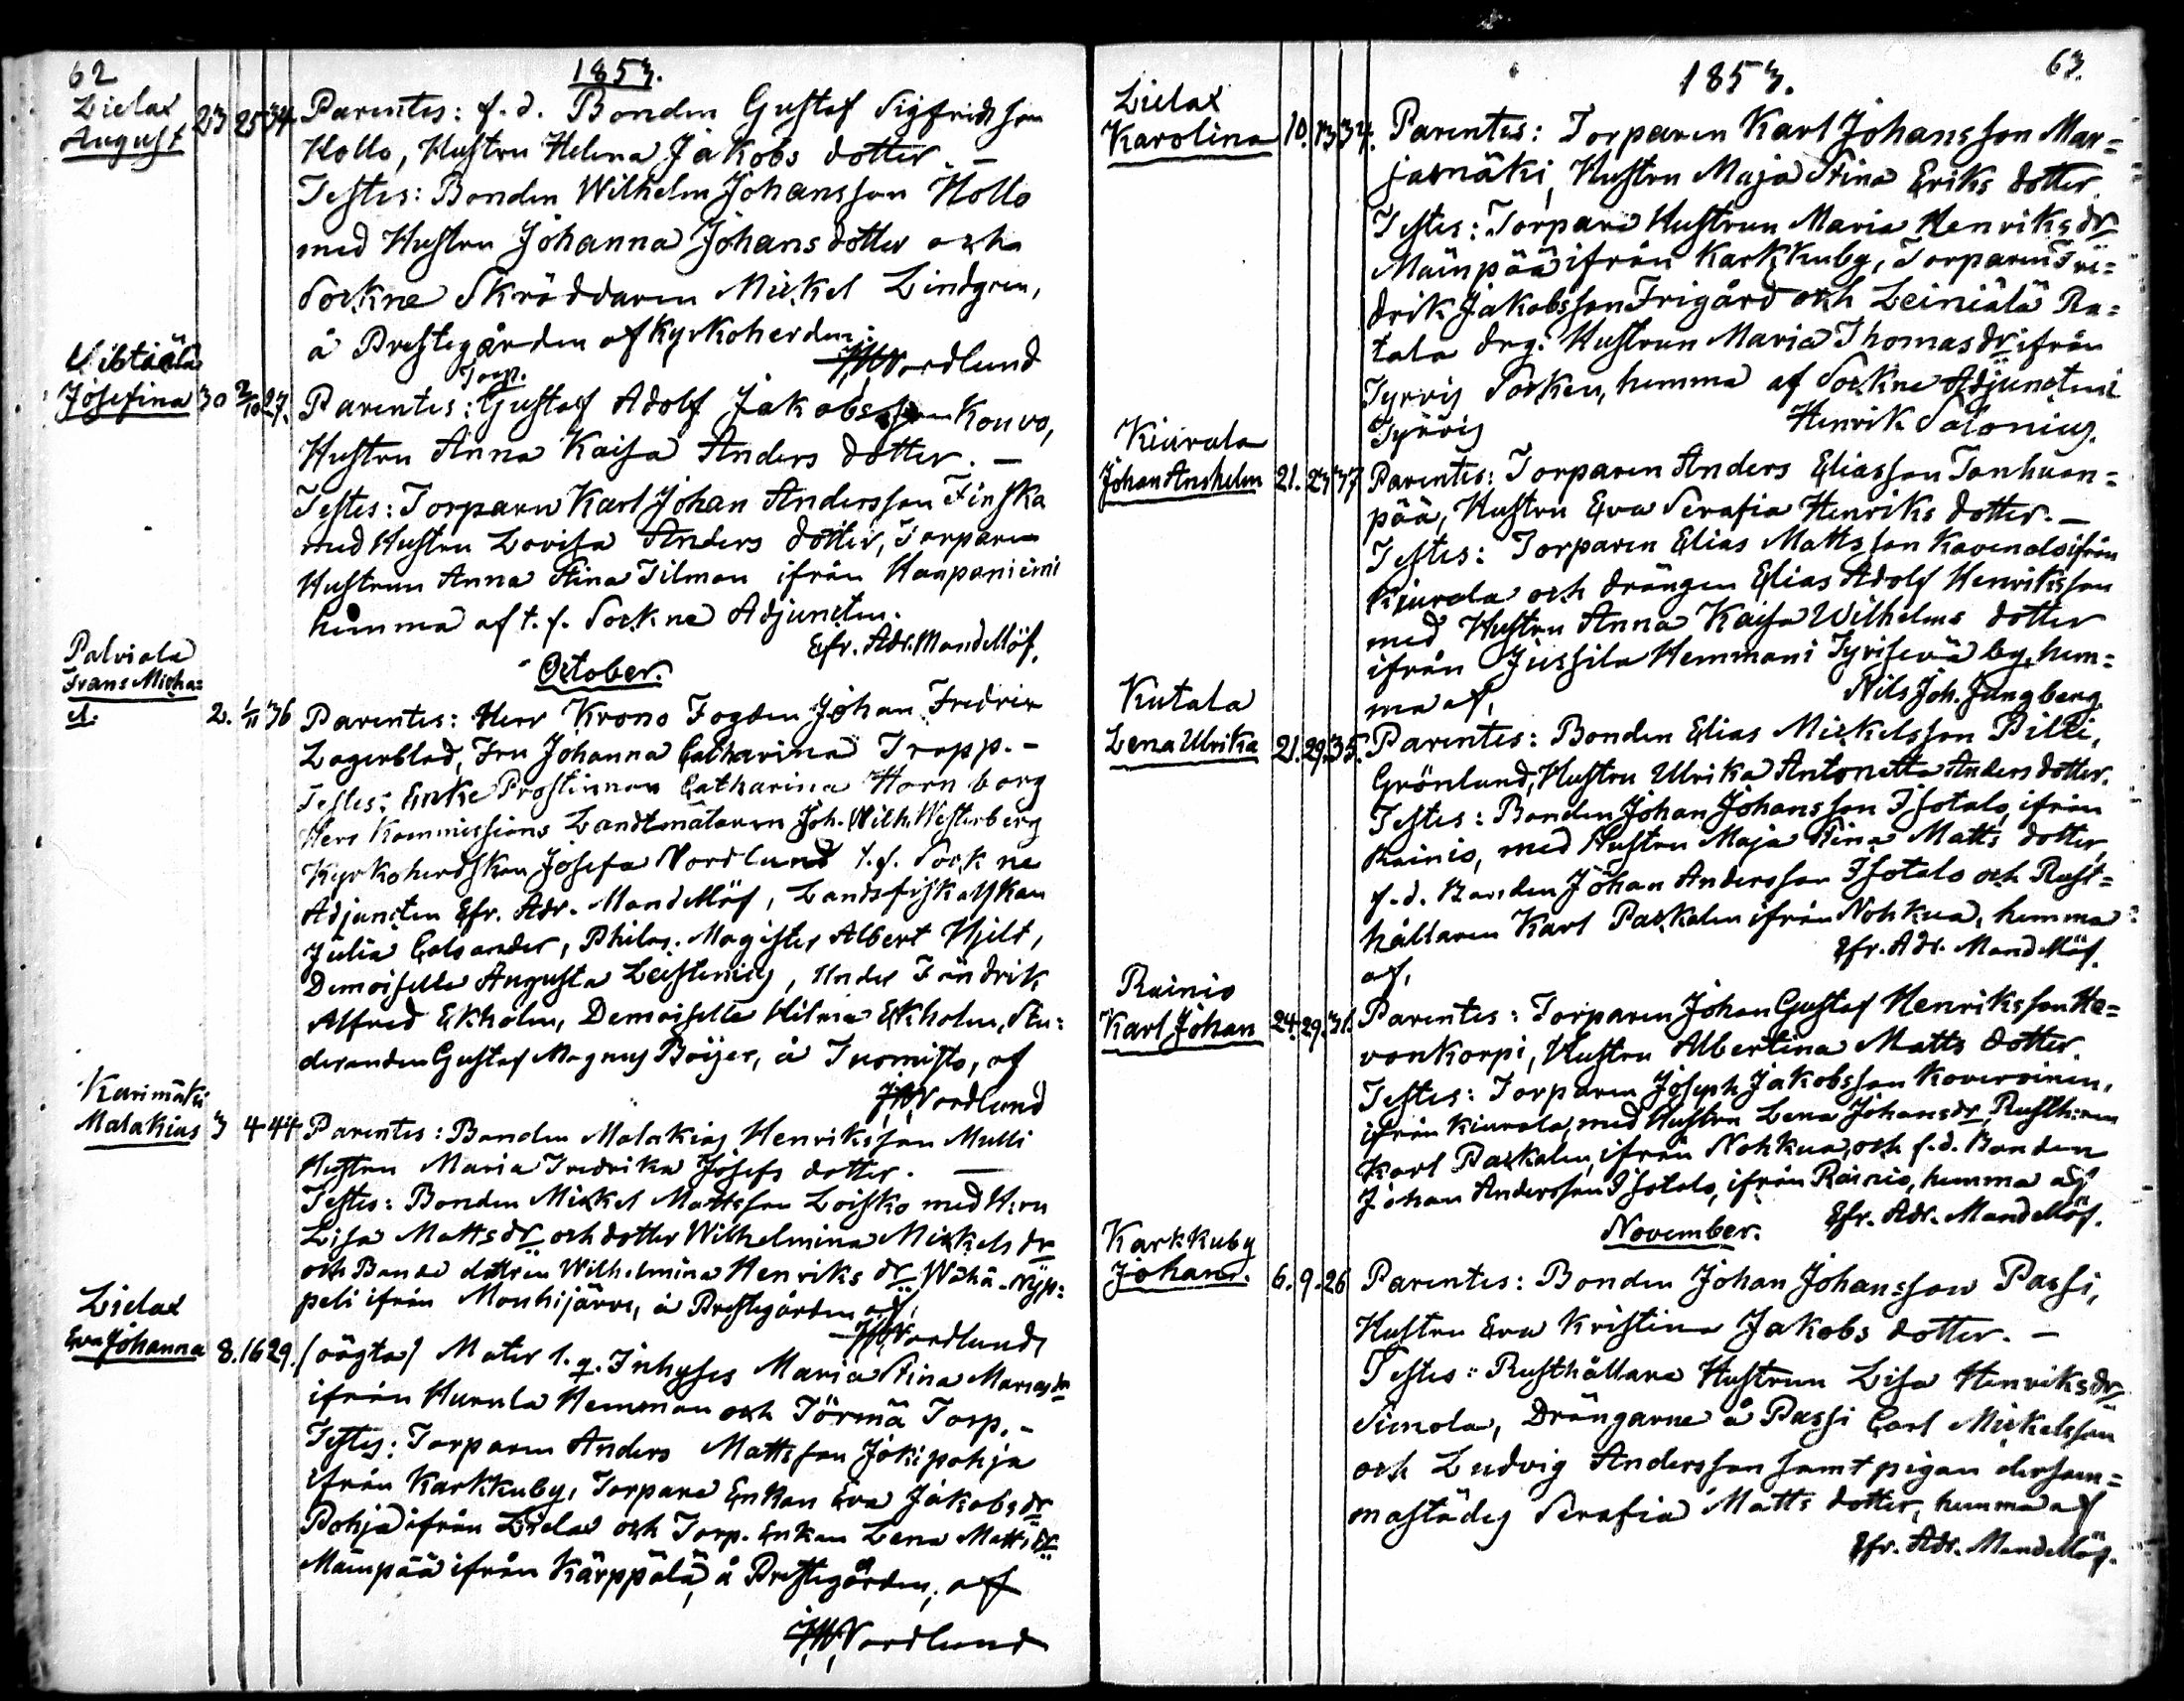 62
1853.
Lielax
August 23 25 34. Parentes: f. d. Bonden Gustaf Sigfridsson
Hollo, Hustru Helena Jakobs dotter. —
Testes: Bonden Wilhelm Johansson Hollo
med Hustru Johanna Johans dotter och
Sockne Skräddaren Mickel Lindgren,
å Prestegården af Kyrkoherden.
JWNordlund
Torp.
Josefina 30 2/10 27. Parentes: Gustaf Adolf Jakobsson Konvo,
Hustru Anna Kaisa Anders dotter. —
Testes: Torparen Karl Johan Andersson Finska
med Hustru Lovisa Anders dotter, Torparen
Hustrun Anna Stina Tilman ifrån Haapaniemi
hemma af t. f. Sockne Adjuncten.
Efr. Adr. Mandellöf.
October.
Palviala
Frans Micha=
el. 2. 1/11 36 Parentes: Herr Krono Fogden Johan Fredrik
Lagerblad, Fru Johanna Catharina Trapp. –
Testes: Enke Prostinnan Catharina Hornborg
Herr Kommissions Landtmätaren Joh. Wilh. Westerberg
Kyrkoherdskan Josefa Nordlund t. f. Sockne
Adjuncten Efr. Adr. Mandellöf, Landsfiskalskan
Julia Calander, Philos. Magister Albert Hjelt,
Demoiselle Augusta Leistenius, Under Fändrik
Alfred Ekholm, Demoiselle Hilma Ekholm, Stu=
deranden Gustaf Magnus Böijer, å Tuomisto, af
JWNordlund
Karimäki
Malakias 3 4 44 Parentes: Bonden Malakias Henriksson Mulli
Hustru Maria Fredrika Josefs dotter. —
Testes: Bonden Mickel Mattsson Loisko med H:ru
Lisa Mattsdr och dotter Wilhelmina Mickelsdr
och Bonde dottren Wilhelmina Henriksdr Wähä-Nyp=
peli ifrån Mouhijärvi, å Prestegården af,
JWNordlund
Lielax
Eva Johanna 8. 16 29. (oägta) Mater l. q. Inhyses Maria Stina Mariasdr
ifrån Hurula Hemman och Törmä Torp. –
Testes: Torparen Anders Mattsson Jokipohja
ifrån Karkkuby, Torpare Enkan Eva Jakobsdr
Pohja ifrån Lielax och Torp. Enkan Lena Mattsdr
Mäenpää ifrån Kärppälä, å Prestegården, af
JWNordlund
63.
1853.
Lielax
Karolina 10. 13 34. Parentes: Torparen Karl Johansson Mar=
jamäki, Hustru Maja Stina Eriks dotter
Testes: Torpare Hustrun Maria Henriksdr
Mäenpää ifrån Karkkuby, Torparen Fre=
drik Jakobsson Frigård och Leiniälä Ra=
tala drg. Hustrun Maria Thomasdr ifrån
Tyrvis Socken, hemma af Sockne Adjuncten i
Tyrvis Henrik Salonius.
Kiurala
Johan Anshelm 21. 23 37 Parentes: Torparen Anders Eliasson Tanhuan=
pää, Hustru Eva Serafia Henriks dotter. —
Testes: Torparen Elias Mattsson Kavenalo ifrån
Kiurala och drängen Elias Adolf Henriksson
med Hustru Anna Kaisa Wilhelms dotter
ifrån Jussila Hemman i Tyrisevä by, hem=
ma af, Nils Joh. Jungberg.
Kutala
Lena Ulrika 21. 29. 35. Parentes: Bonden Elias Mickelsson Pilli,
Grönlund, Hustru Ulrika Antonetta Anders dotter.
Testes: Bonden Johan Johansson Isotalo, ifrån
Rainio, med Hustru Maja Stina Matts dotter,
f. d. Bonden Johan Andersson Isotalo och Rust=
hållaren Karl Packalen ifrån Nohkua, hemma
af, Efr. Adr. Mandellöf.
Rainio
Karl Johan 24. 29. 31. Parentes: Torparen Johan Gustaf Henriksson Ha=
vonkorpi, Hustru Albertina Matts dotter.
Testes: Torparen Joseph Jakobsson Koveroinen,
ifrån Kiurala, med Hustru Lena Johansdr, Rusth:ren
Karl Packalen, ifrån Nohkua, och f. d. Bonden
Johan Andersson Isotalo, ifrån Rainio, hemma af
Efr. Adr. Mandellöf.
November.
Karkkuby
Johan. 6. 9. 26 Parentes: Bonden Johan Johansson Passi,
Hustru Eva Kristina Jakobs dotter. —
Testes: Rusthållare Hustrun Lisa Henriksdr
Simola, Drängarne å Passi Carl Mickelsson
och Ludvig Andersson samt pigan dersam=
mastädes Serafia Matts dotter, hemma af
Efr. Adr. Mandellöf.